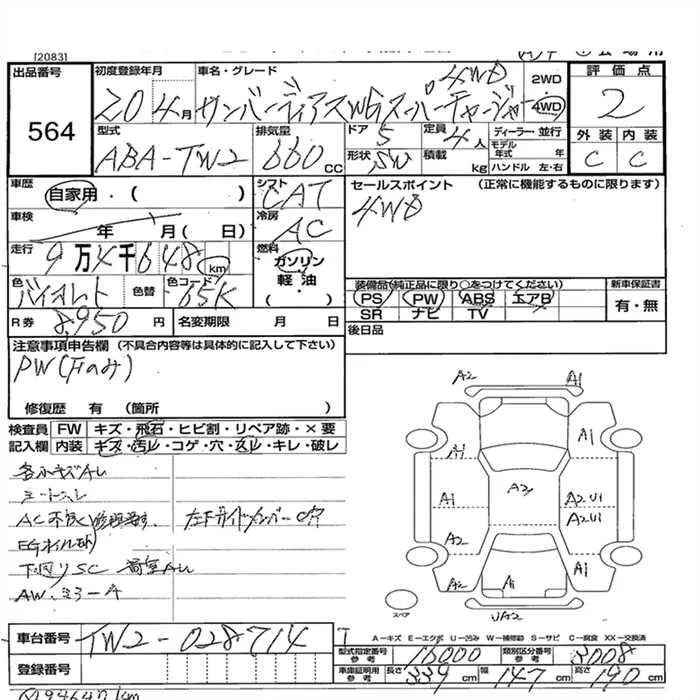 [2083]
出品番号
564
初度登録年月
20 4月
車名・グレード
サンバーディアスWGスーパーチャージャー 4WD
2WD
4WD
評価点
2
外装 内装
C C
型式
ABA-TW2
排気量
660 CC
ドア 5
定員 4人
形状 SW
積載 kg
ディーラー・並行
モデル年式 年
ハンドル 左・右
車歴
自家用・( )
車検
年 月(日)
走行
9万4千648 km
色 バイオレット
色替
色コード 65K
R券 8,950円
名変期限 月 日
シフト CAT
冷房 AC
燃料
ガソリン
軽油
セールスポイント (正常に機能するものに限ります)
4WD
装備品(純正品に限り○をつけてください)
PS PW ABS エアB
SR ナビ TV
新車保証書
有・無
後日品
注意事項申告欄 (不具合内容等は具体的に記入して下さい)
PW(Fのみ)
修復歴 有 (箇所 )
検査員 FW キズ・飛石・ヒビ割・リペア跡・×要
記入欄 内装 キズ・汚レ・コゲ・穴・込レ・キレ・破レ
各小キズAU
AC不良
EGオイル
下廻りSC
AW・ミラーA
A2 A1
A1 A1
A1 A2 A2U1
A2U1
A2 A1
A2 A1
UA2
スペア
A－キズ E－エクボ U－凹み W－補修跡 S－サビ C－腐食 XX－交換済
車台番号 TW2-028714
登録番号
型式指定番号 参考 15000
類別区分番号 参考 3008
車庫証明用 参考 長さ 339cm 幅 147cm 高さ 190cm